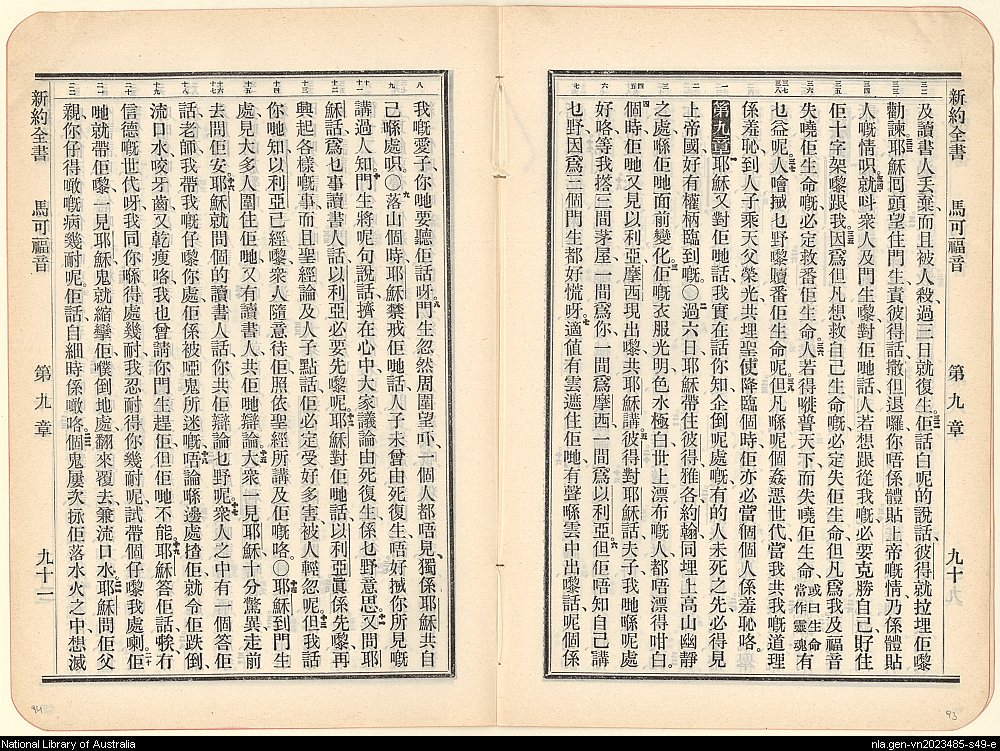 新約全書 馬可福音 第九章 九十
及讀書人丟棄而且被人殺過三日就復生。佢話白呢的說話、彼得就拉埋佢嚟
勸諫、耶穌囘頭望住門生責彼得話、撒但退囉你唔係體貼上帝嘅情、乃係體貼
人嘅情呮。就呌衆人及門生嚟、對佢哋話、人若想跟從我嘅、必要克勝自己、孭住
佢十字架嚟跟我。因爲但凡想救自己生命嘅、必定失佢生命、但凡爲我及福音
失嘵佢生命嘅、必定救番佢生命。人若得嘥普天下、而失嘵佢生命、或曰生命當作靈魂有
乜益呢。人噲搣乜野嚟贖番佢生命呢。但凡喺呢個姦惡世代、當我共我嘅道理
係羞恥、到人子乘天父榮光共埋聖使降臨個時、佢亦必當個個人係羞恥咯。
第九章 耶穌又對佢哋話、我實在話你知、企倒呢處嘅、有的人未死之先、必得見
上帝國、好有權柄臨到嘅。〇過六日、耶穌帶住彼得、雅各、約翰、同埋上高山幽靜
之處、喺佢哋面前變化。佢嘅衣服光明、色水極白、世上漂布嘅人都唔漂得咁白。
個時佢哋又見以利亞摩西現出嚟、共耶穌講。彼得對耶穌話、夫子、我哋喺呢處
好咯、等我搭三間茅屋、一間爲你、一間爲摩西、一間爲以利亞。但佢唔知自己講
乜野、因爲三個門生都好慌呀。適値有雲遮住佢哋、有聲喺雲中出嚟話、呢個係
我嘅愛子、你哋要聽佢話呀。門生忽然周圍望吓、一個人都唔見、獨係耶穌共自
己喺處呮。〇落山個時、耶穌禁戒佢哋話、人子未曾由死復生、唔好搣你所見嘅
講過人知。門生將呢句說話擠在心中、大家議論由死復生、係乜野意思。又問耶
穌話、爲乜事讀書人話以利亞必要先嚟呢。耶穌對佢哋話、以利亞眞係先嚟、再
興起各樣嘅事、而且聖經論及人子、點話佢必定受好多害、被人輕忽呢。但我話
你哋知、以利亞已經嚟、衆人隨意待佢、照依聖經所講及佢嘅咯。〇耶穌到門生
處、見大多人圍住佢哋、又有讀書人共佢哋辯論。大衆一見耶穌、十分驚異、走前
去問佢安。耶穌就問個的讀書人話、你共佢辯論乜野呢。衆人之中有一個答佢
話、老師、我帶我嘅仔嚟你處、佢係被啞鬼所迷嘅。唔論喺邊處揸佢、就令佢跌倒、
流口水、咬牙齒、又乾瘦咯、我也曾請你門生趕佢、但佢哋不能。耶穌答佢話、唉、冇
信德嘅世代呀、我同你喺得處幾耐、我忍耐得你幾耐呢、試帶個仔嚟我處喇。佢
哋就帶佢嚟、一見耶穌、鬼就縮攣佢、僕倒地處、翻來覆去、兼流口水。耶穌問佢父
親、你仔得噉嘅病幾耐呢、佢話、自細時係噉咯。個鬼屢次揼佢落水火之中、想滅
新約全書 馬可福音 第九章 九十一
National Library of Australia
nla.gen-vn2023485-s49-e